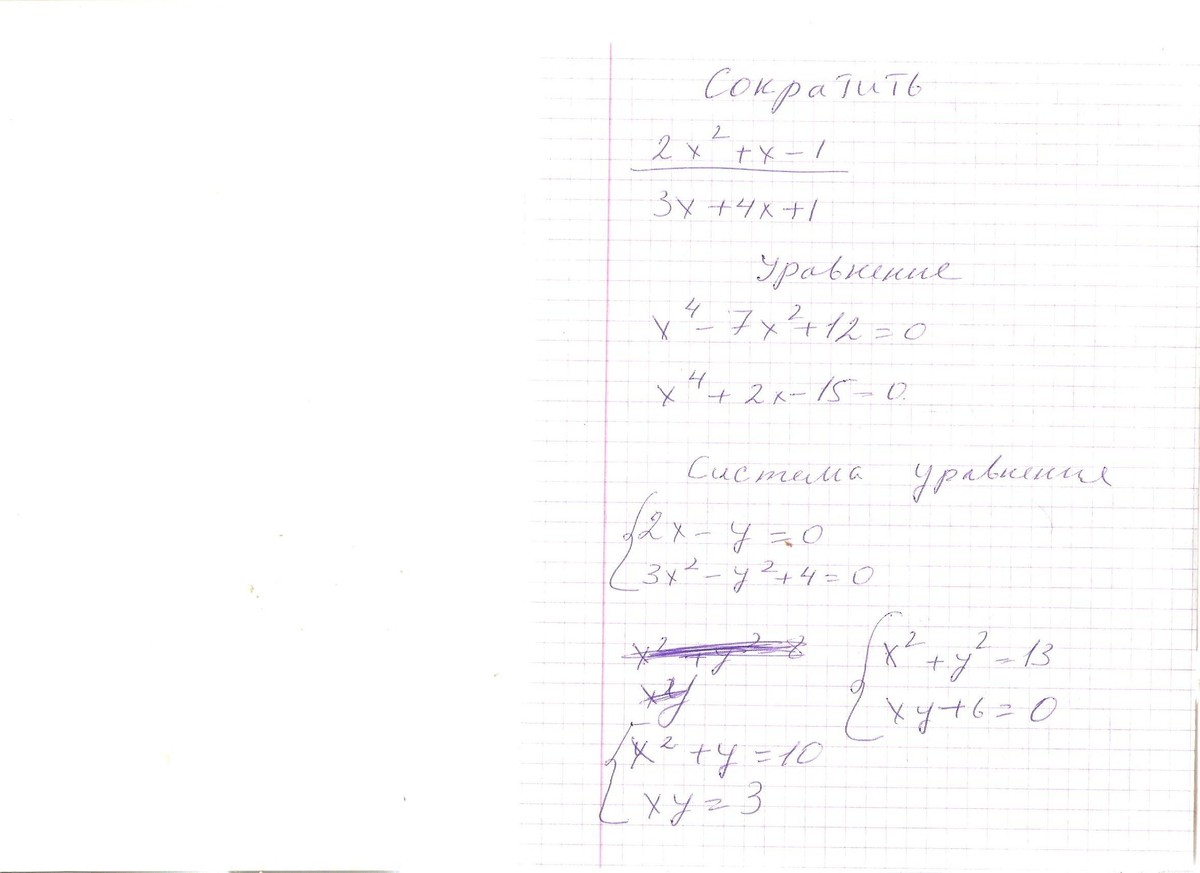 Сократить
2x² + x - 1
3x + 4x + 1
Уравнение
x⁴ - 7x² + 12 = 0
x⁴ + 2x - 15 = 0
Система уравнения
2x - y = 0
3x² - y² + 4 = 0
x² + y² = 13
xy + 6 = 0
x² + y = 10
xy = 3